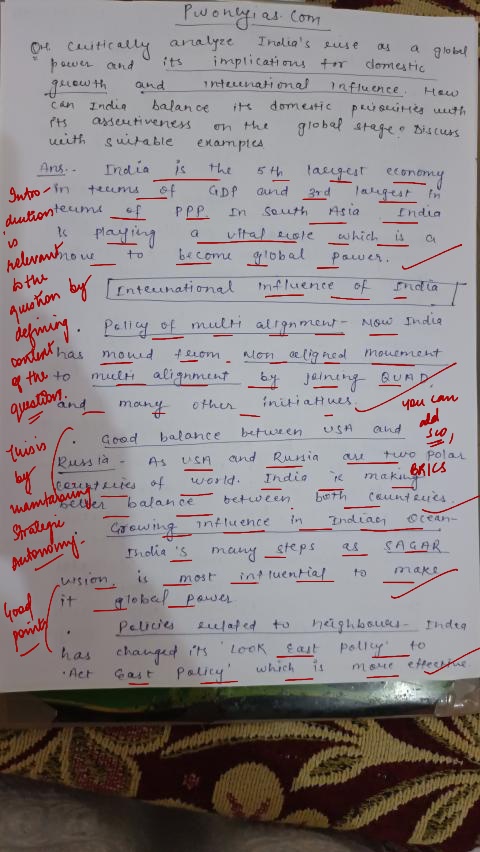 Pwonlyias.Com
Q4. Critically analyze India's rise as a global
power and its implications for domestic
growth and international influence. How
can India balance its domestic priorities with
its assertiveness on the global stage? Discuss
with suitable examples
Ans.- India is the 5th largest economy
in terms of GDP and 3rd largest in
terms of PPP. In South Asia India
is playing a vital role which is a
move to become global power.
Introduction is relevant to the question by defining context of the question.
International influence of India
Policy of multi alignment- Now India
has moved from Non aligned movement
to multi alignment by joining QUAD
and many other initiatives.
you can add SCO, BRICS
· Good balance between USA and
Russia - As USA and Russia are two polar
countries of world. India is making
better balance between both countries.
This is by maintaining Strategic autonomy.
· Growing influence in Indian Ocean-
India's many steps as SAGAR
vision is most influential to make
it global power
Good points
· Policies related to neighbours- India
has changed its 'Look East Policy' to
'Act East Policy' which is more effective.